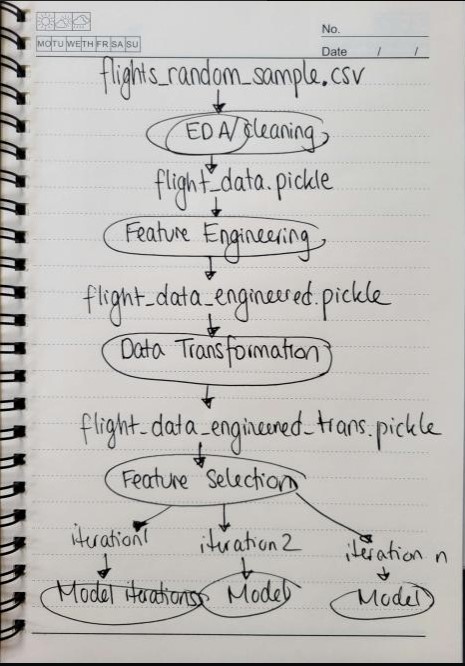 No.
MO TU WE TH FR SA SU
Date / /
flights_random_sample.csv
EDA/cleaning
flight_data.pickle
Feature Engineering
flight_data_engineered.pickle
Data Transformation
flight_data_engineered_trans.pickle
Feature Selection
iteration1 iteration 2 iteration n
Model iterations Model Model